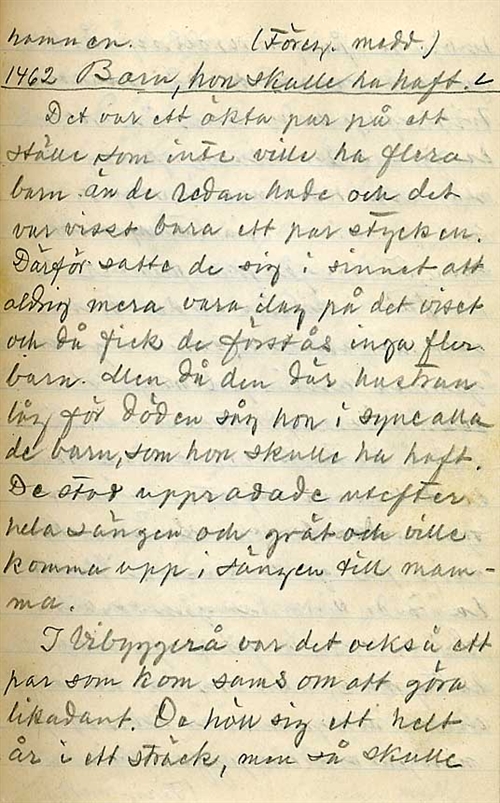 hamnen. (Föreg. medd.)
1462 Barn, hon skulle ha haft. L
Det var ett äkta par på ett
ställe, som inte ville ha flera
barn än de redan hade och det
var visst bara ett par stycken.
Därför satte de sig i sinnet att
aldrig mera vara ilag på det viset
och då fick de förstås inga fler
barn. Men då den där hustrun
låg för döden såg hon i syne alla
de barn, som hon skulle ha haft.
De stod uppradade utefter
hela sängen och grät och ville
komma upp i sängen till mam-
ma.
I Vibyggerå var det också ett
par som kom sams om att göra
likadant. De höll sig ett helt
år i ett sträck, men så skulle